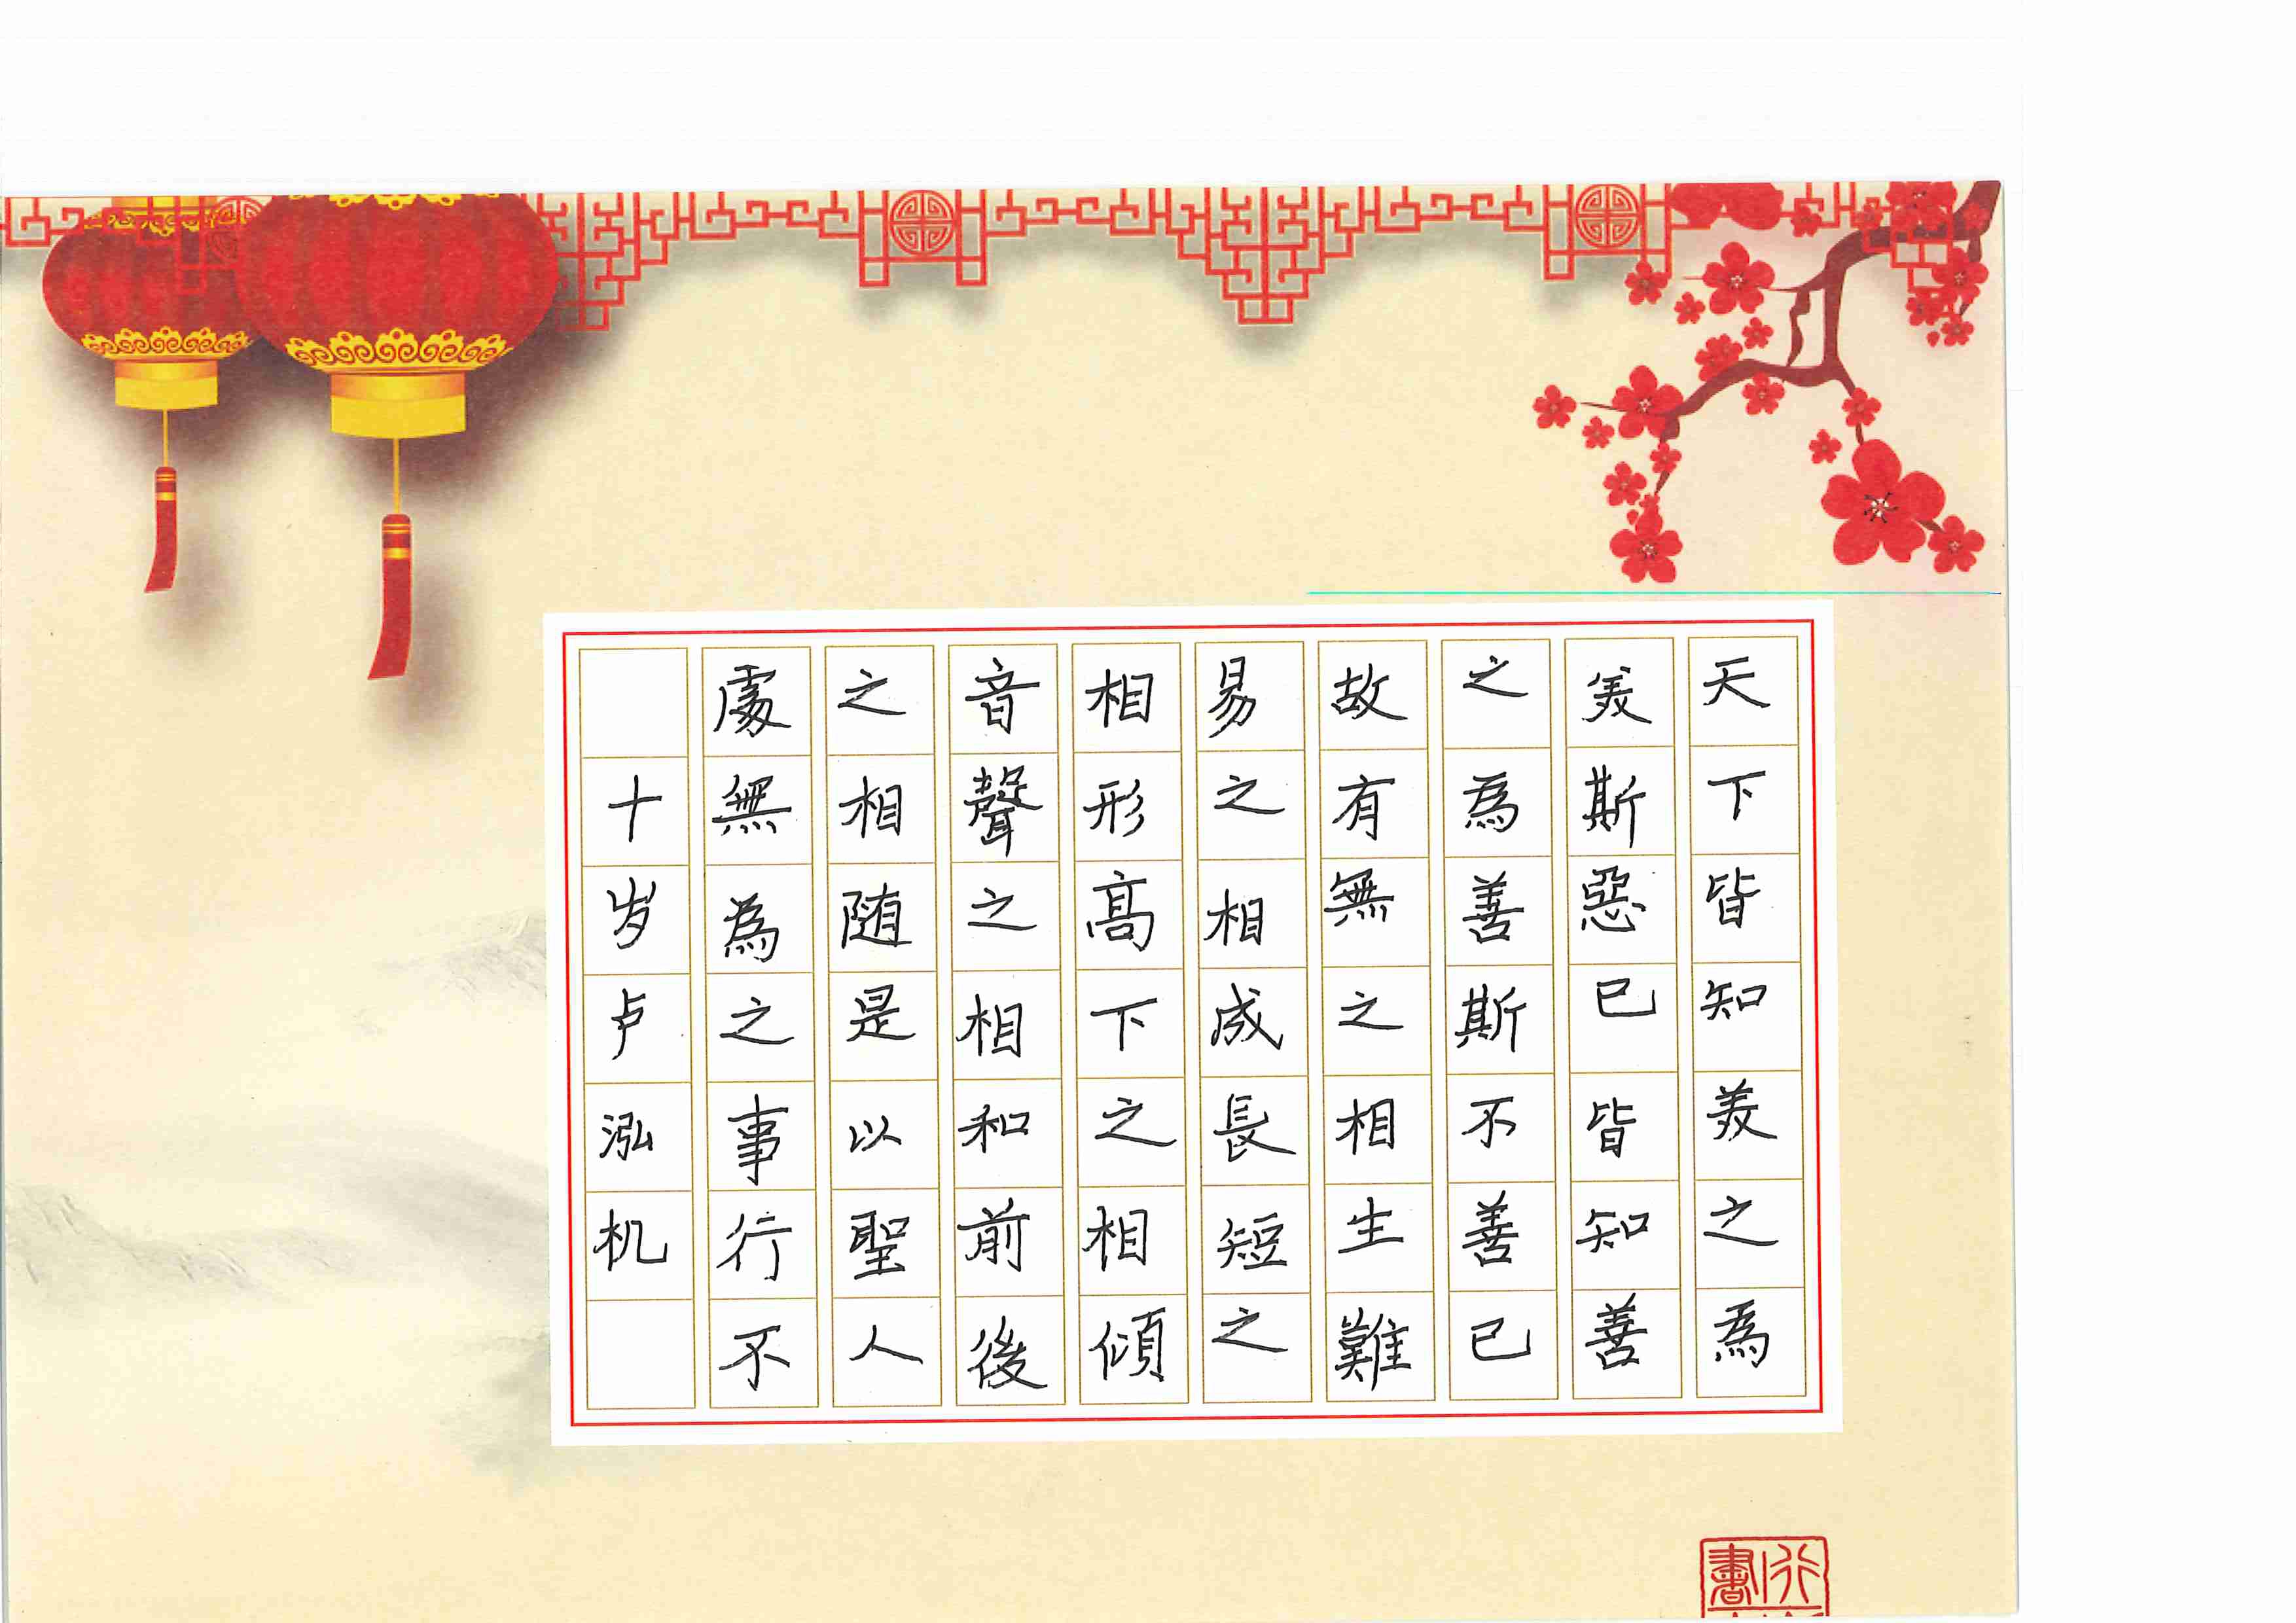 天下皆知美之為
美斯惡已皆知善
之為善斯不善已
故有無之相生難
易之相成長短之
相形高下之相傾
音聲之相和前後
之相随是以聖人
處無為之事行不
十岁卢泓机